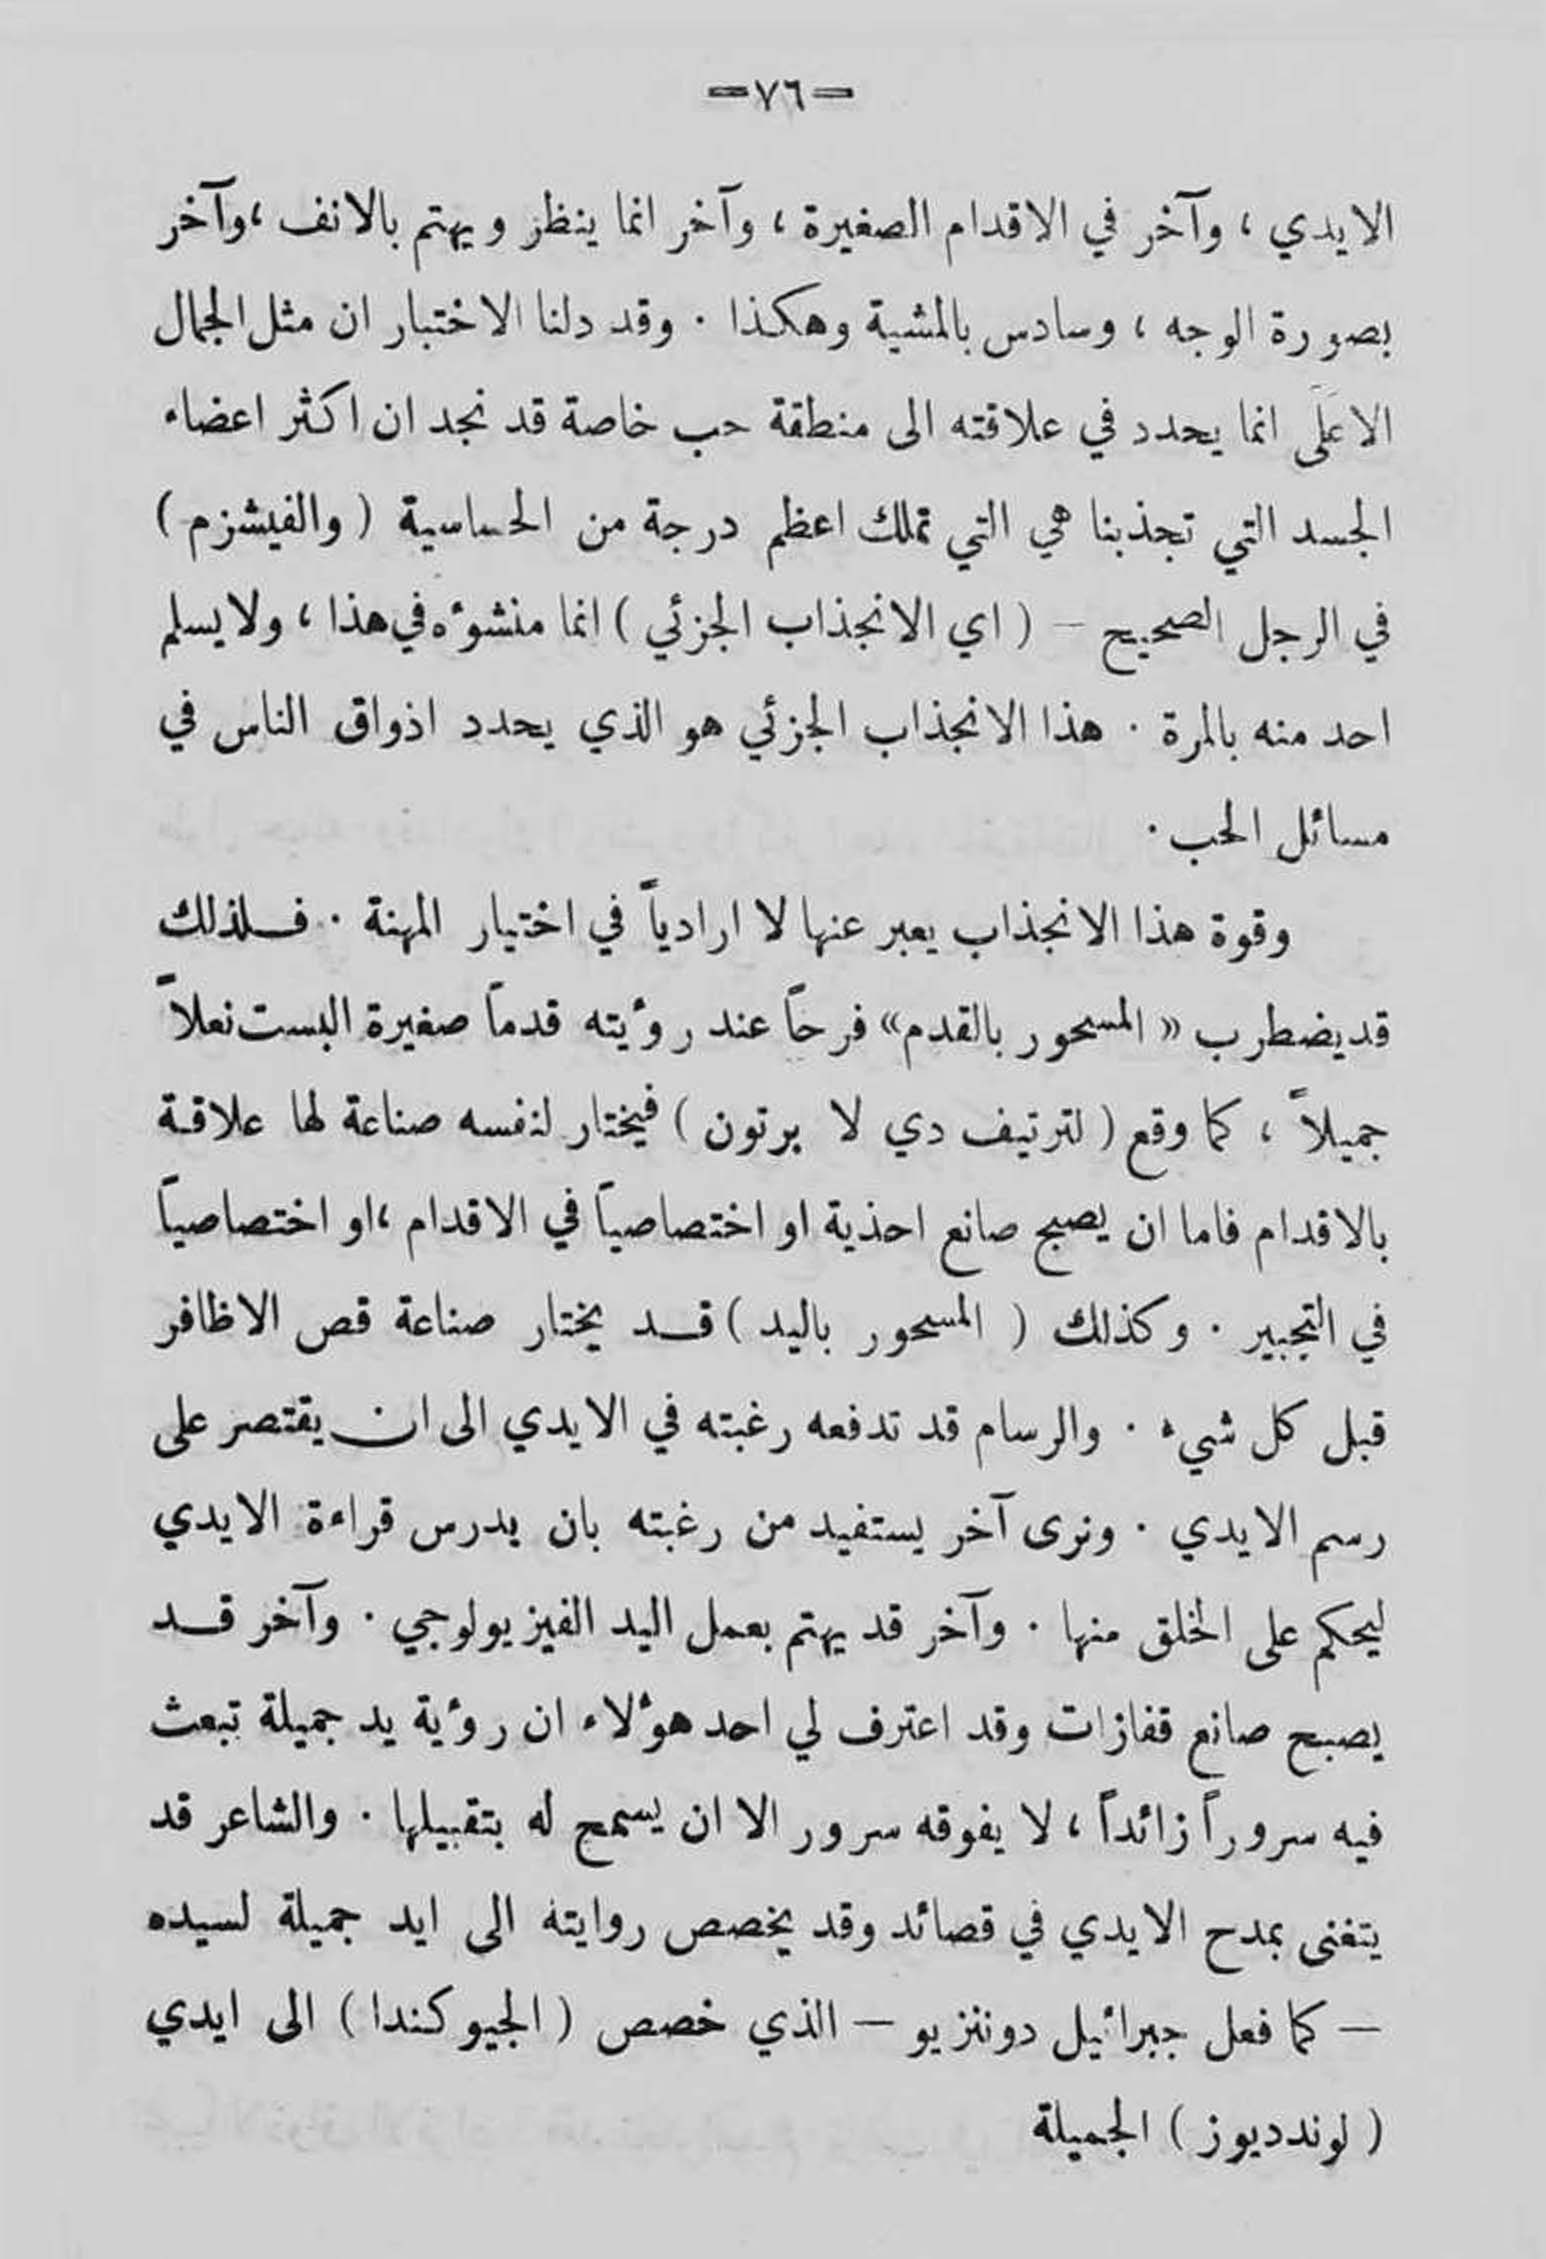 =٧٦=
الايدي ، وآخر في الاقدام الصغيرة ، وآخر انما ينظر ويهتم بالانف ،وآخر
بصورة الوجه ، وسادس بالمشية وهكذا . وقد دلنا الاختبار ان مثل الجمال
الاعَلَى انما يحدد في علاقته الى منطقة حب خاصة قد نجد ان اكثر اعضاء
الجسد التي تجذبنا هي التي تملك اعظم درجة من الحساسية ( والفيشزم )
في الرجل الصحيح – ( اي الانجذاب الجزئي ) انما منشوءه في هذا ، ولا يسلم
احد منه بالمرة . هذا الانجذاب الجزئي هو الذي يحدد اذواق الناس في
مسائل الحب .
وقوة هذا الانجذاب يعبر عنها لا ارادياً في اختيار المهنة . فلذلك
قد يضطرب « المسحور بالقدم» فرحاً عند روءيته قدماً صغيرة البست نعلاً
جميلاً ، كما وقع ( لترتيف دي لا برتون ) فيختار لنفسه صناعة لها علاقة
بالاقدام فاما ان يصبح صانع احذية او اختصاصياً في الاقدام ،او اختصاصياً
في التجبير . وكذلك ( المسحور باليد ) قد يختار صناعة قص الاظافر
قبل كل شيء . والرسام قد تدفعه رغبته في الايدي الى ان يقتصر على
رسم الايدي . ونرى آخر يستفيد من رغبته بان يدرس قراءة الايدي
ليحكم على الخلق منها . وآخر قد يهتم بعمل اليد الفيزيولوجي . وآخر قد
يصبح صانع قفازات وقد اعترف لي احد هوءلاء ان روءية يد جميلة تبعث
فيه سروراً زائداً ، لا يفوقه سرور الا ان يسمح له بتقبيلها . والشاعر قد
يتغنى بمدح الايدي في قصائد وقد يخصص روايته الى ايد جميلة لسيده
– كما فعل جبرائيل دوننزيو – الذي خصص ( الجيوكندا ) الى ايدي
( لوندديوز ) الجميلة